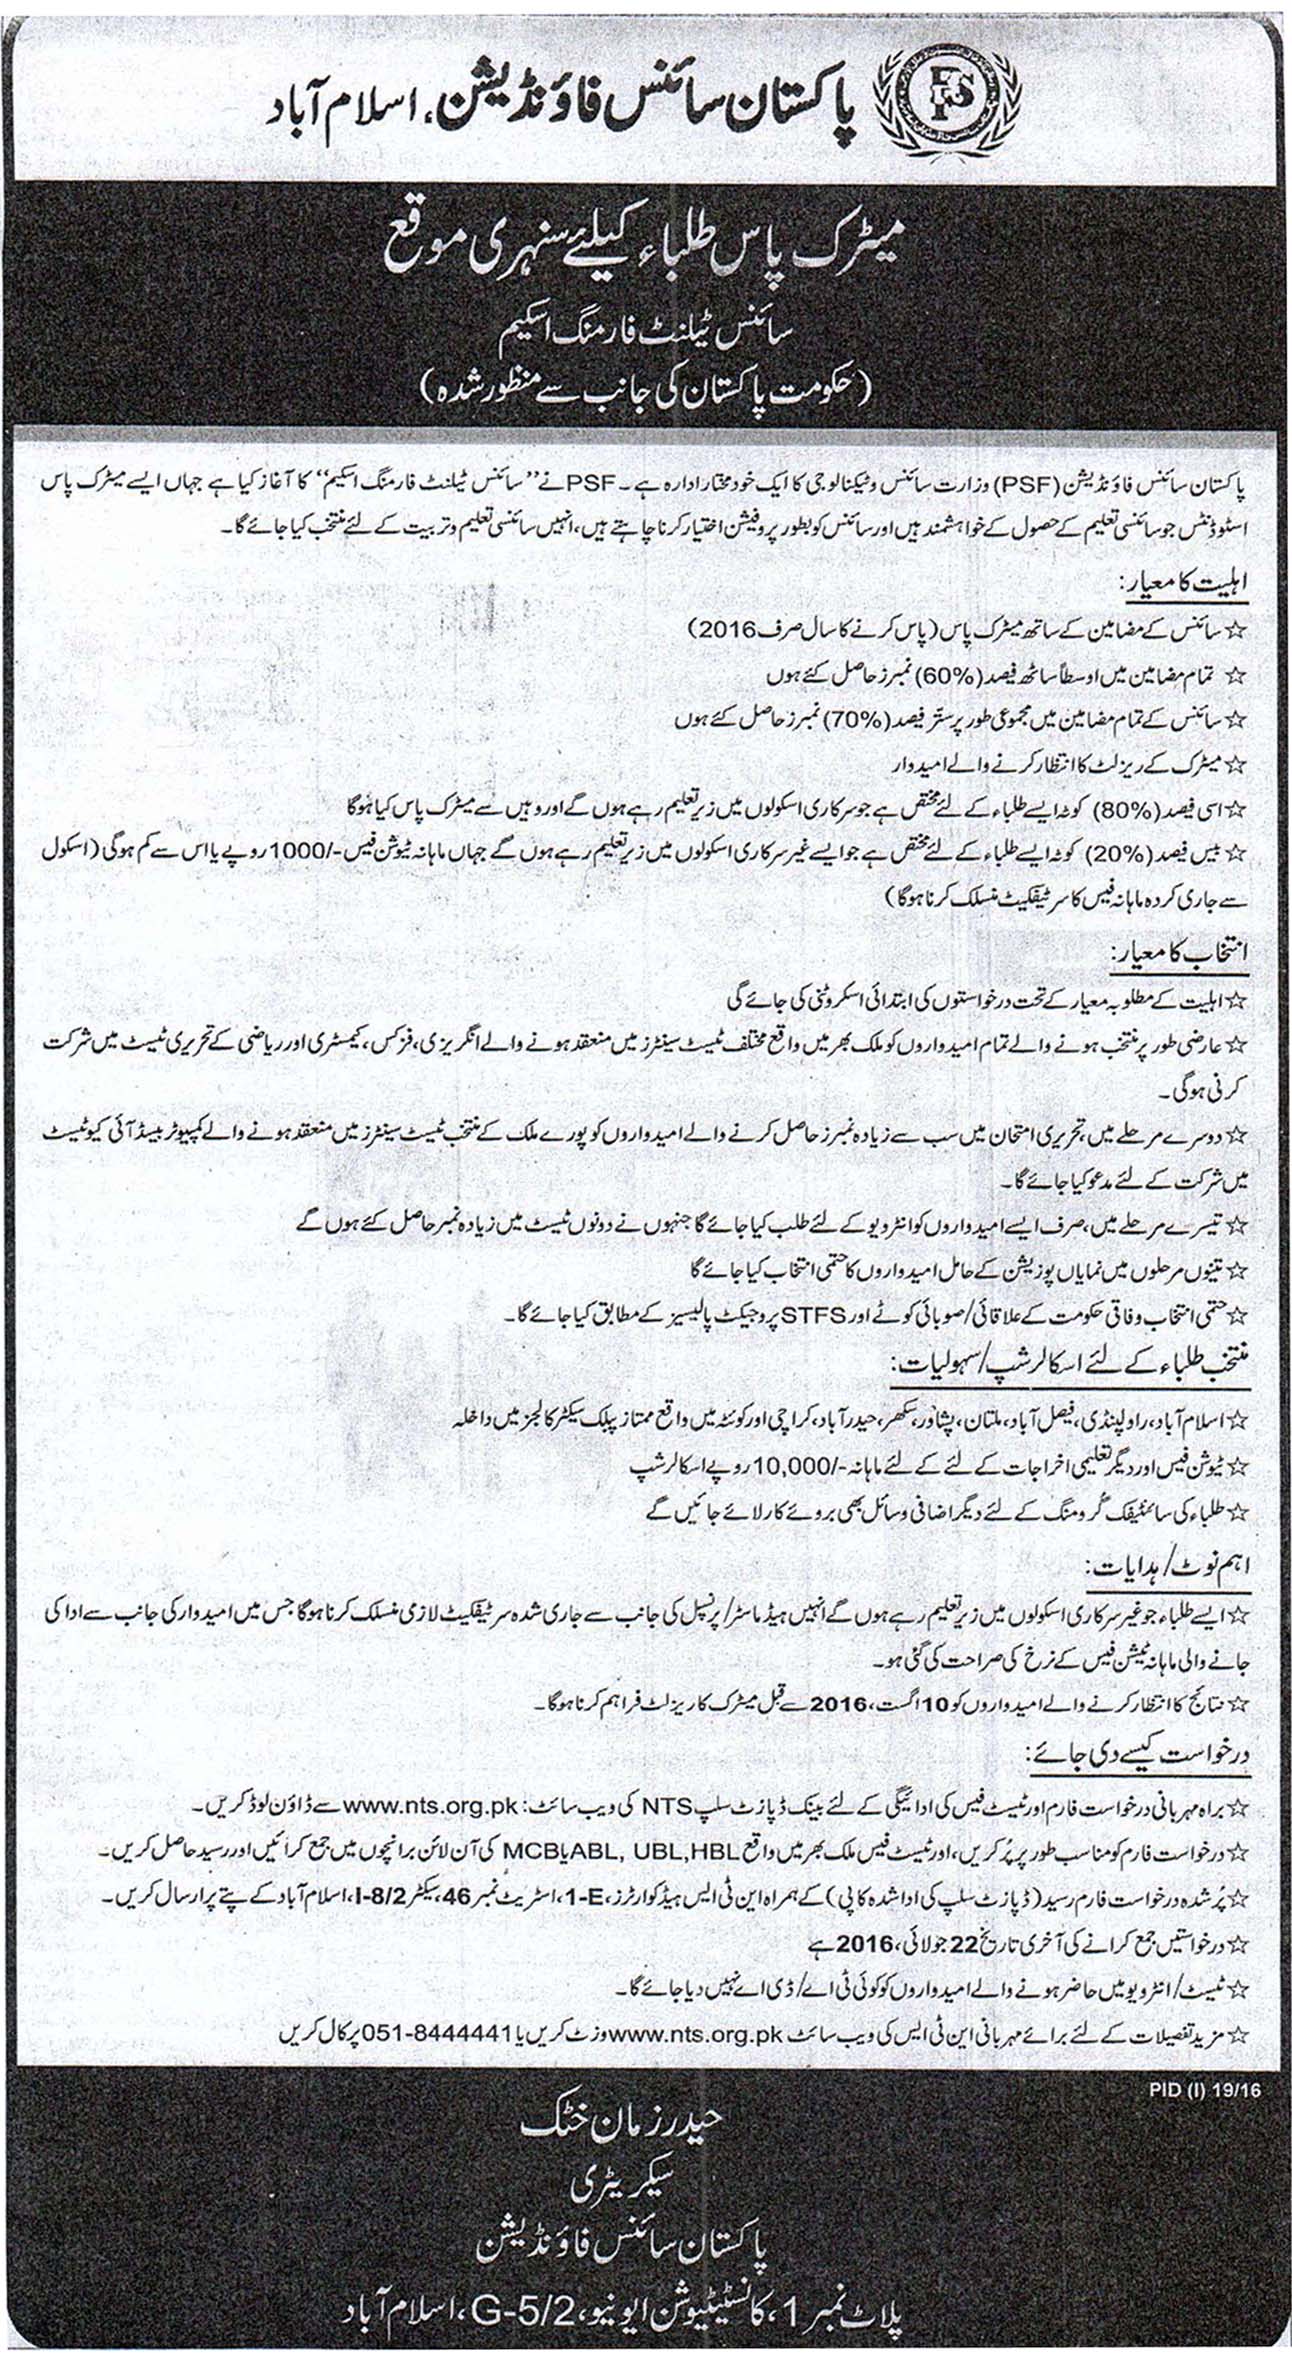 پاکستان سائنس فاؤنڈیشن، اسلام آباد
PSF
میٹرک پاس طلباء کیلئے سنہری موقع
سائنس ٹیلنٹ فارمنگ اسکیم
(حکومت پاکستان کی جانب سے منظور شدہ)
پاکستان سائنس فاؤنڈیشن (PSF) وزارت سائنس وٹیکنالوجی کا ایک خودمختار ادارہ ہے۔ PSF نے ”سائنس ٹیلنٹ فارمنگ اسکیم“ کا آغاز کیا ہے جہاں ایسے میٹرک پاس
اسٹوڈنٹس جو سائنسی تعلیم کے حصول کے خواہشمند ہیں اور سائنس کو بطور پروفیشن اختیار کرنا چاہتے ہیں، انہیں سائنسی تعلیم وتربیت کے لئے منتخب کیا جائے گا۔
اہلیت کا معیار:
☆ سائنس کے مضامین کے ساتھ میٹرک پاس (پاس کرنے کا سال صرف 2016)
☆ تمام مضامین میں اوسطاً ساٹھ فیصد (60%) نمبرز حاصل کئے ہوں
☆ سائنس کے تمام مضامین میں مجموعی طور پر ستّر فیصد (70%) نمبرز حاصل کئے ہوں
☆ میٹرک کے ریزلٹ کا انتظار کرنے والے امیدوار
☆ اسی فیصد (80%) کوٹہ ایسے طلباء کے لئے مختص ہے جو سرکاری اسکولوں میں زیرِ تعلیم رہے ہوں گے اور وہیں سے میٹرک پاس کیا ہوگا
☆ بیس فیصد (20%) کوٹہ ایسے طلباء کے لئے مختص ہے جو ایسے غیر سرکاری اسکولوں میں زیرِ تعلیم رہے ہوں گے جہاں ماہانہ ٹیوشن فیس -/1000 روپے یا اس سے کم ہوگی (اسکول
سے جاری کردہ ماہانہ فیس کا سرٹیفکیٹ منسلک کرنا ہوگا)
انتخاب کا معیار:
☆ اہلیت کے مطلوبہ معیار کے تحت درخواستوں کی ابتدائی اسکروٹنی کی جائے گی
☆ عارضی طور پر منتخب ہونے والے تمام امیدواروں کو ملک بھر میں واقع مختلف ٹیسٹ سینٹرز میں منعقد ہونے والے انگریزی، فزکس، کیمسٹری اور ریاضی کے تحریری ٹیسٹ میں شرکت
کرنی ہوگی۔
☆ دوسرے مرحلے میں، تحریری امتحان میں سب سے زیادہ نمبرز حاصل کرنے والے امیدواروں کو پورے ملک کے منتخب ٹیسٹ سینٹرز میں منعقد ہونے والے کمپیوٹر بیسڈ آئی کیو ٹیسٹ
میں شرکت کے لئے مدعو کیا جائے گا۔
☆ تیسرے مرحلے میں، صرف ایسے امیدواروں کو انٹرویو کے لئے طلب کیا جائے گا جنہوں نے دونوں ٹیسٹ میں زیادہ نمبر حاصل کئے ہوں گے
☆ تینوں مرحلوں میں نمایاں پوزیشن کے حامل امیدواروں کا حتمی انتخاب کیا جائے گا
☆ حتمی انتخاب وفاقی حکومت کے علاقائی/صوبائی کوٹے اور STFS پروجیکٹ پالیسیز کے مطابق کیا جائے گا۔
منتخب طلباء کے لئے اسکالرشپ/سہولیات:
☆ اسلام آباد، راولپنڈی، فیصل آباد، ملتان، پشاور، سکھر، حیدرآباد، کراچی اور کوئٹہ میں واقع ممتاز پبلک سیکٹر کالجز میں داخلہ
☆ ٹیوشن فیس اور دیگر تعلیمی اخراجات کے لئے کے لئے ماہانہ -/10,000 روپے اسکالرشپ
☆ طلباء کی سائنٹیفک گرومنگ کے لئے دیگر اضافی وسائل بھی بروئے کار لائے جائیں گے
اہم نوٹ/ہدایات:
☆ ایسے طلباء جو غیر سرکاری اسکولوں میں زیرِ تعلیم رہے ہوں گے انہیں ہیڈ ماسٹر/پرنسپل کی جانب سے جاری شدہ سرٹیفکیٹ لازمی منسلک کرنا ہوگا جس میں امیدوار کی جانب سے ادا کی
جانے والی ماہانہ ٹیشن فیس کے نرخ کی صراحت کی گئی ہو۔
☆ نتائج کا انتظار کرنے والے امیدواروں کو 10 اگست، 2016 سے قبل میٹرک کا ریزلٹ فراہم کرنا ہوگا۔
درخواست کیسے دی جائے:
☆ براہ مہربانی درخواست فارم اور ٹیسٹ فیس کی ادائیگی کے لئے بینک ڈپازٹ سلپ NTS کی ویب سائٹ: www.nts.org.pk سے ڈاؤن لوڈ کریں۔
☆ درخواست فارم کو مناسب طور پر پُر کریں، اور ٹیسٹ فیس ملک بھر میں واقع ABL, UBL,HBL یا MCB کی آن لائن برانچوں میں جمع کرائیں اور رسید حاصل کریں۔
☆ پُرشدہ درخواست فارم رسید (ڈپازٹ سلپ کی اداشدہ کاپی) کے ہمراہ این ٹی ایس ہیڈ کوارٹرز، 1-E، اسٹریٹ نمبر 46، سیکٹر I-8/2، اسلام آباد کے پتے پر ارسال کریں۔
☆ درخواستیں جمع کرانے کی آخری تاریخ 22 جولائی، 2016 ہے
☆ ٹیسٹ/انٹرویو میں حاضر ہونے والے امیدواروں کو کوئی ٹی اے/ڈی اے نہیں دیا جائے گا۔
☆ مزید تفصیلات کے لئے برائے مہربانی این ٹی ایس کی ویب سائٹ www.nts.org.pk وزٹ کریں یا 051-8444441 پر کال کریں
PID (I) 19/16
حیدر زمان خٹک
سیکریٹری
پاکستان سائنس فاؤنڈیشن
پلاٹ نمبر 1، کانسٹیٹیوشن ایونیو، G-5/2، اسلام آباد